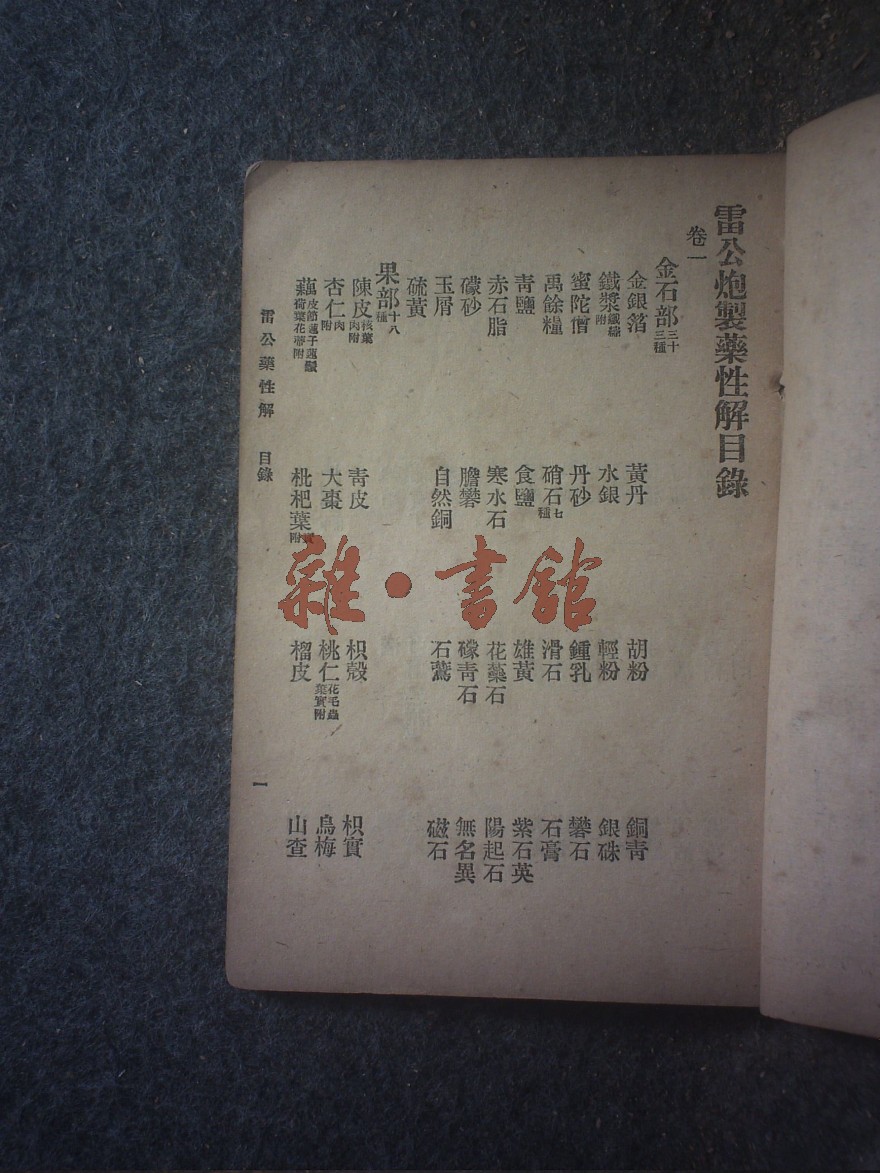 雷公炮製藥性解目錄
卷一
金石部三十三種
金銀箔 黃丹 胡粉 銅青
鐵漿鐵繡附 水銀 輕粉 銀硃
蜜陀僧 丹砂 鍾乳 礬石
禹餘糧 硝石七種 滑石 石膏
青鹽 食鹽 雄黃 紫石英
赤石脂 寒水石 花蘂石 陽起石
礞砂 膽礬 礞青石 無名異
玉屑 自然銅 石鷰 磁石
硫黃
果部十八種
陳皮核葉肉附 青皮 枳殼 枳實
杏仁肉附 大棗 桃仁花毛蟲葉實附 烏梅
藕皮節蓮子蓮鬚荷葉花蒂附 枇杷葉實附 榴皮 山查
雷公藥性解 目錄 一
雜·書館